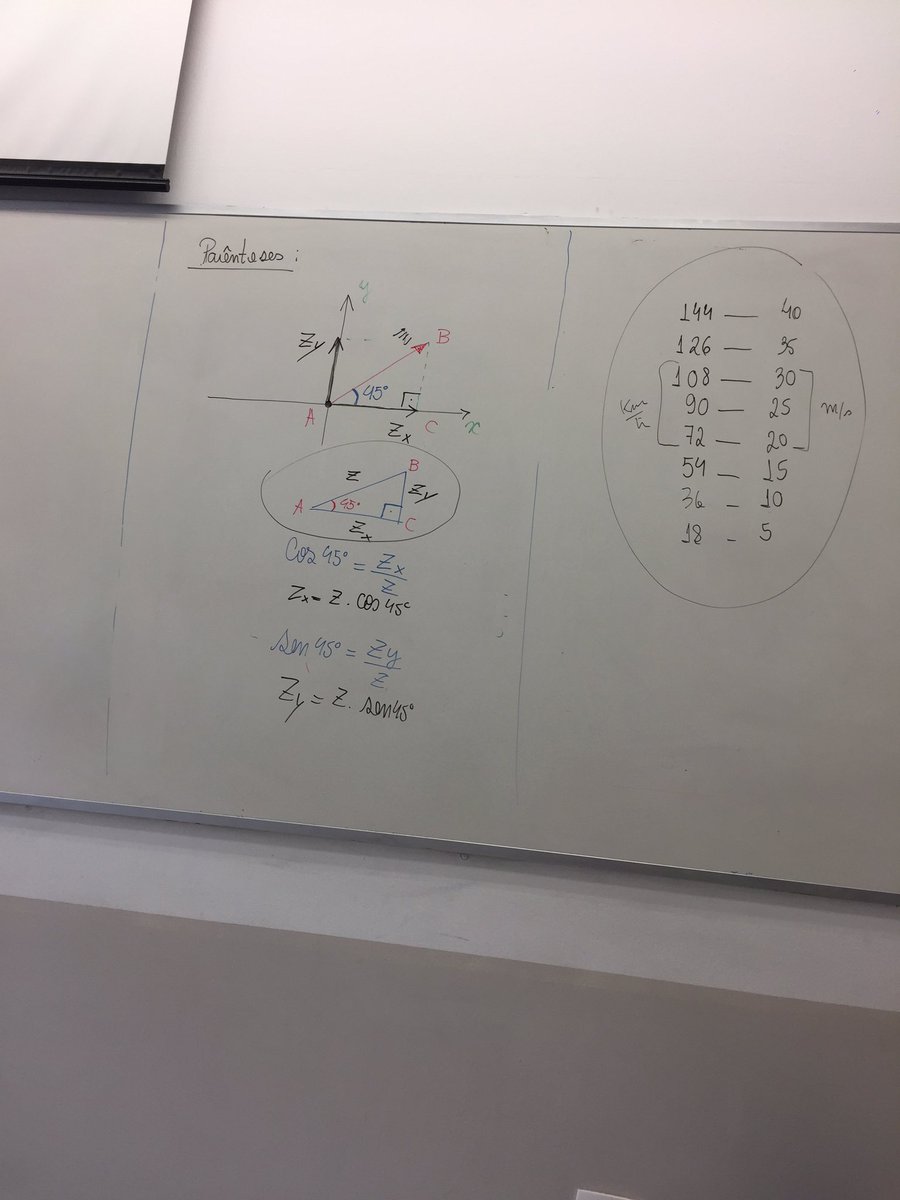 Parênteses :
y
Zy
B
45°
A
Zx
C
x
B
Z
Zy
A
45°
Zx
C
Cos 45° = Zx/Z
Zx = Z . cos 45°
sen 45° = Zy/Z
Zy = Z . sen 45°
144 — 40
126 — 35
108 — 30
Km/h
90 — 25
m/s
72 — 20
54 — 15
36 - 10
18 - 5